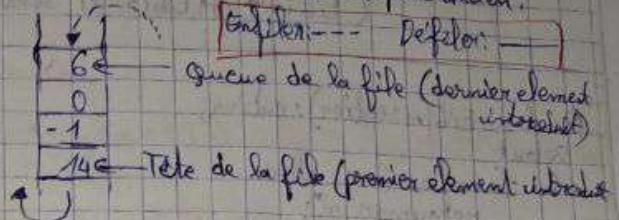 Enfiler: --- Défiler: ——
6 Queue de la file (dernier element
introduit)
0
-1
14 Tête de la file (premier element introduit